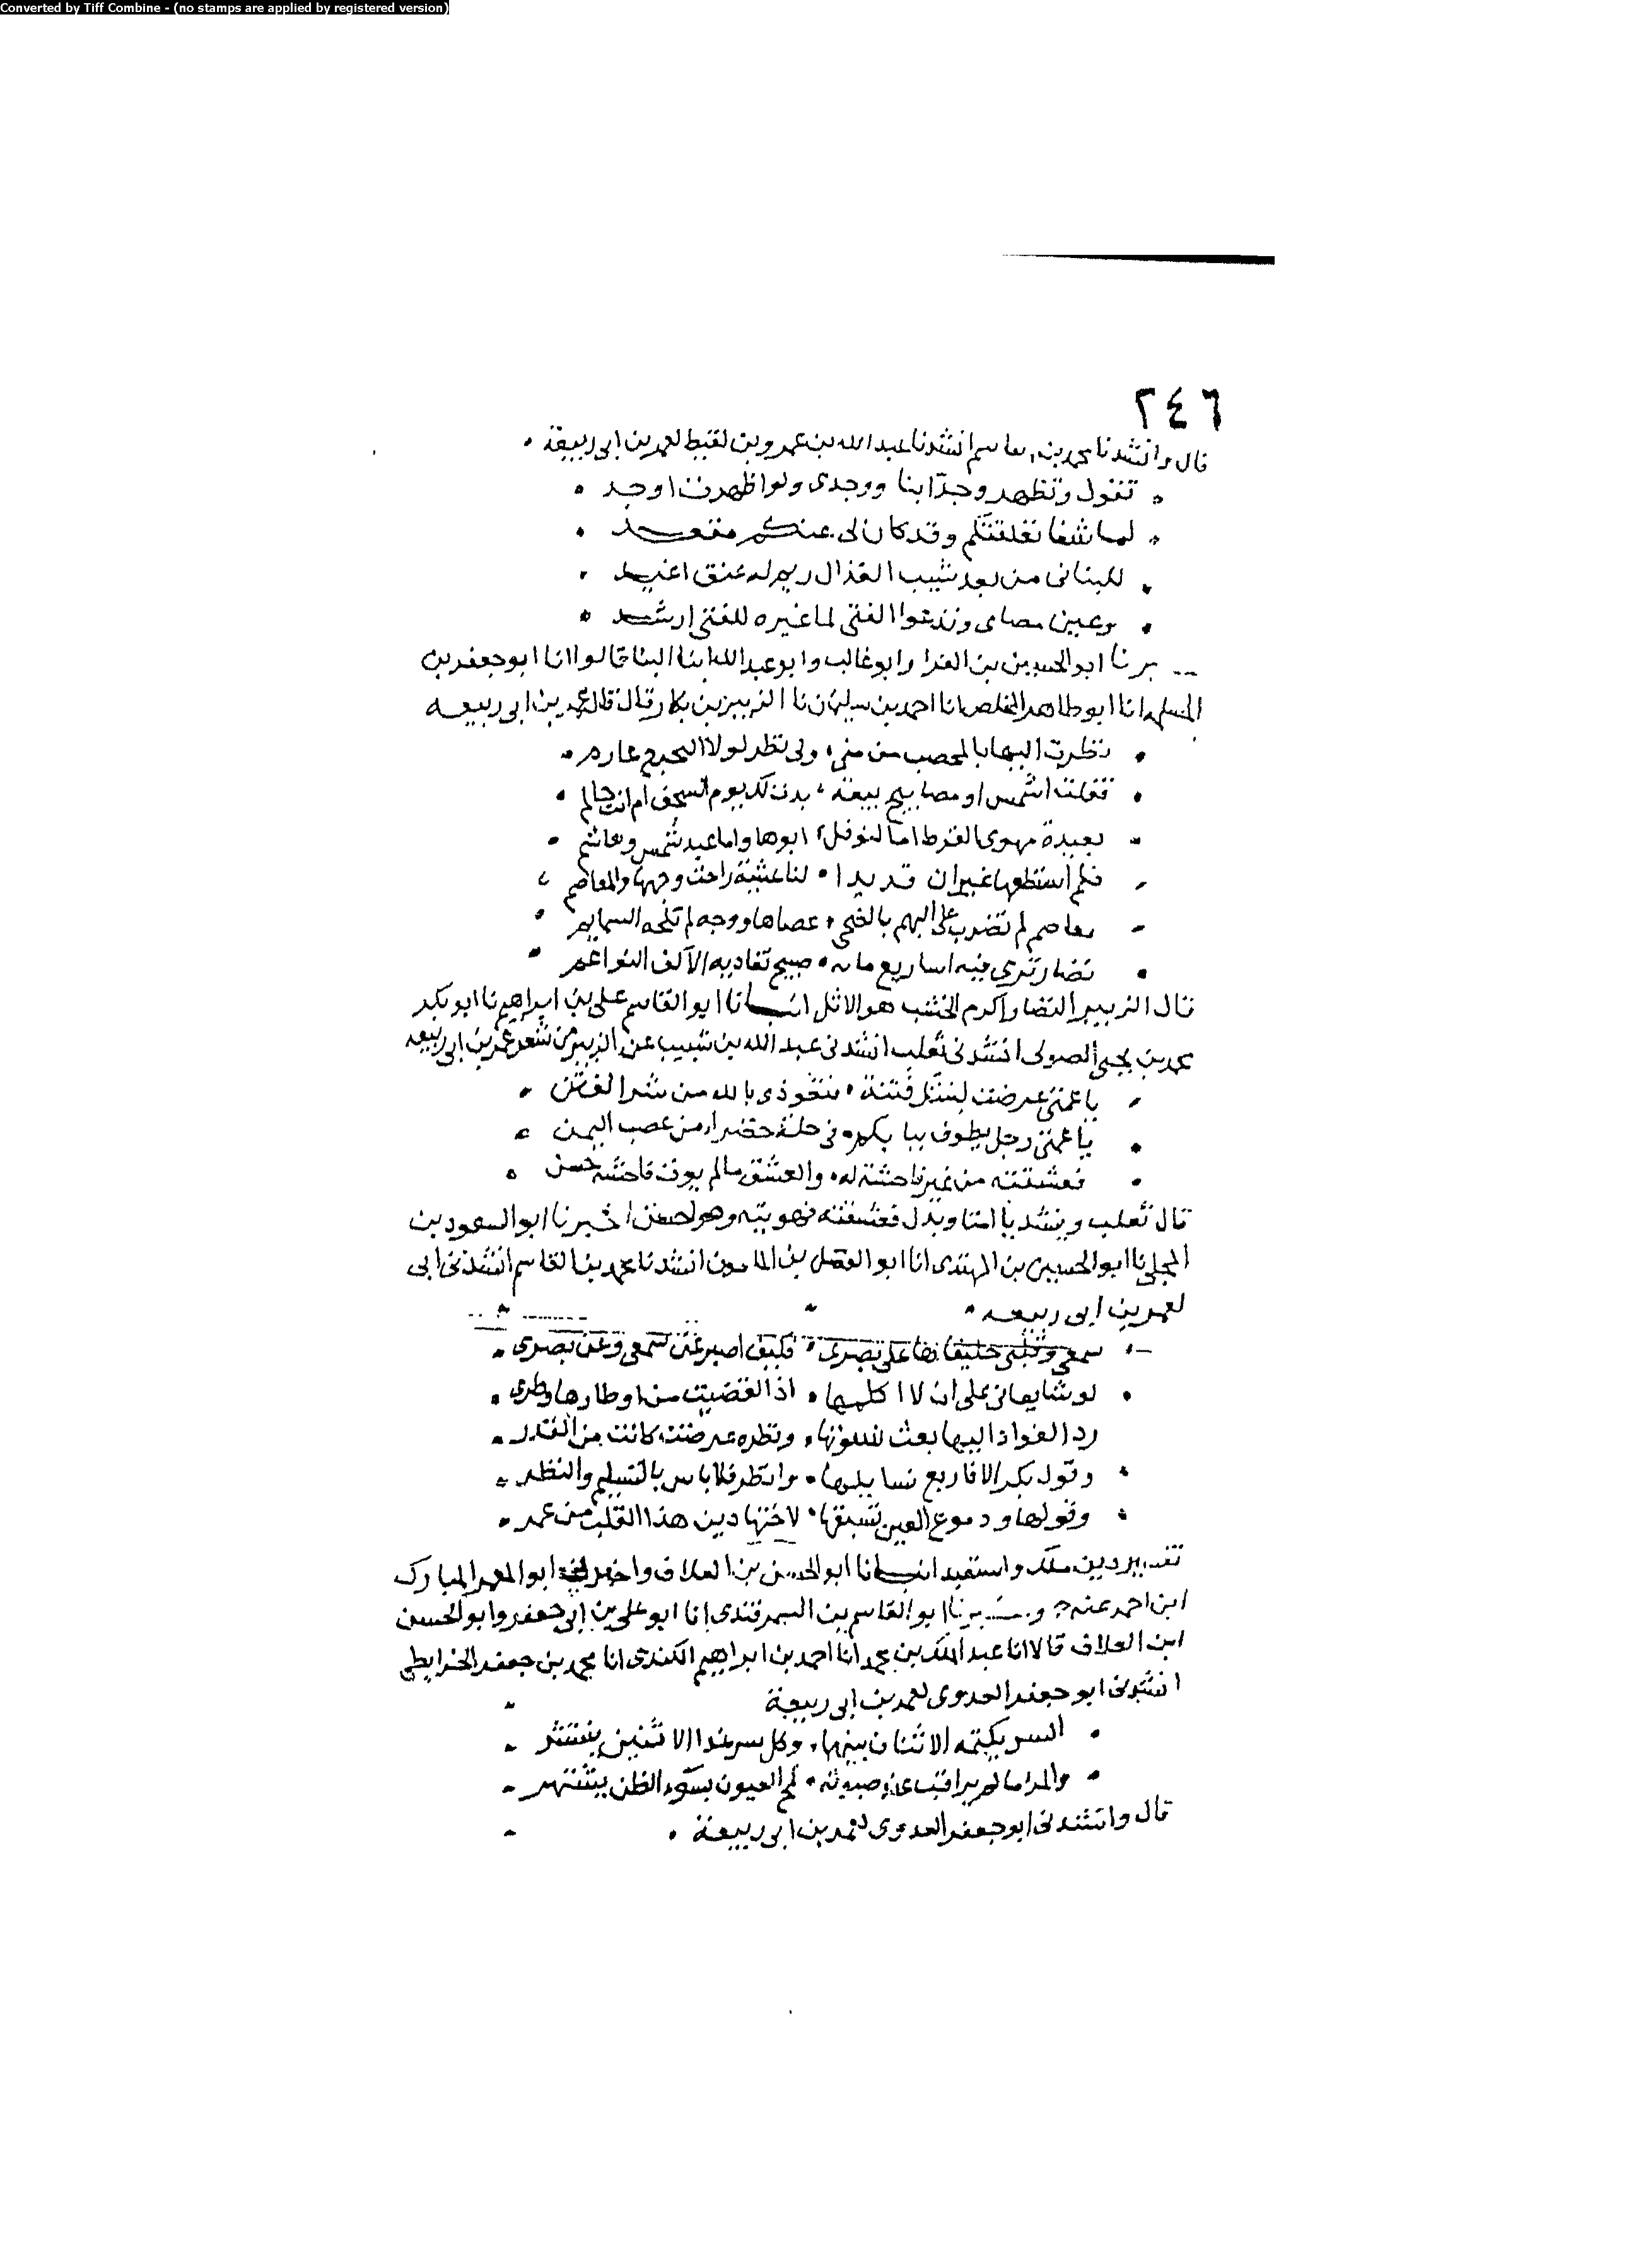 Converted by Tiff Combine - (no stamps are applied by registered version)
٢٤٦
قال وانشدنا محمد بن انشدنا عبد الله بن عمرو بن لقيط لعمر بن ابى ربيعة
تقول وتظهر وجدا بنا ووجدى ولو اظهرت اوجد
لما شفا تعلقتكم وقد كان لى عنكم مقعد
من بعد شيب القذال ريم له عنق اغيد
وعين وتدعوا الفتى لما غيره للفتى ارشد
برنا ابو الحسين بن الفرا وابو غالب وابو عبد الله ابنا البنا قالوا انا ابو جعفر بن
المسلمه انا ابو طاهر المخلص انا احمد بن سليمان نا الزبير بن بكار قال قال عمر بن ابى ربيعه
نظرت اليها بالمحصب من منى ولى نظر لولا التحرج عارم
فقلت اشمس او مصابيح بيعة بدت لك يوم السجف ام انت حالم
بعيدة مهوى القرط اما لنوفل ابوها واما عبد شمس وهاشم
فلم استطعها غير ان قد بدا لنا عشية راحت وجهها والمعاصم
معاصم لم تضرب على البهم بالضحى عصاها ووجه لم تلحه السمايم
نضار ترى فيه اساريع مايه صبيح تغاديه الاكف النواعم
قال الزبير النضار اكرم الخشب هو الاثل انبانا ابو القاسم على بن ابراهيم نا ابو بكر
محمد بن يحيى الصولى انشدنى ثعلب انشدنى عبد الله بن شبيب عن الزبير من شعر عمر بن ابى ربيعه
يا عمتى عرضت لبنتك فتنة فتعوذى بالله من شر الفتن
يا عمتى رجل يطوف ببابكم فى حلة خضراء من عصب اليمن
فعشقته من غير فاحشة له والعشق مالم يوت فاحشه حسن
قال ثعلب وينشد يا امتا وبدل فعشقته فهويته وهو احسن اخبرنا ابو السعود بن
المجلى نا ابو الحسين بن المهتدى انا ابو الفضل بن المامون انشدنا محمد بن القاسم انشدنى ابى
لعمر بن ابى ربيعه
سمعى وقلبى حليفاها على بصرى فكيف اصبر عن سمعى وعن بصرى
لو شايعانى على ان لا اكلمها اذا لقضيت من اوطارها وطرى
رد الفواد اليها بعث نسوتها ونظره عرضت كانت من القدر
وقول بكر الا فاربع نسايلها وانظر فلا باس بالتسليم والنظر
وقولها ودموع العين تسبقها لاختها دين هذا القلب من عمر
تفسير دين ملك واستعبد انبانا ابو الحسن بن العلاف واخبرنى ابو المعمر المبارك
ابن احمد عنه ح و نا ابو القاسم بن السمرقندى انا ابو على بن ابى جعفر وابو الحسن
ابن العلاف قالا انا عبد الملك بن محمد انا احمد بن ابراهيم الكندى انا محمد بن جعفر الخرايطى
انشدنى ابو جعفر العدوى لعمر بن ابى ربيعة
السر يكتمه الاثنان بينهما وكل سر عدا الاثنين ينتشر
والمرا مالم يراقب عند صبوته لمح العيون بسوء الظن يشتهر
قال وانشدنى ابو جعفر العدوى لعمر بن ابى ربيعة